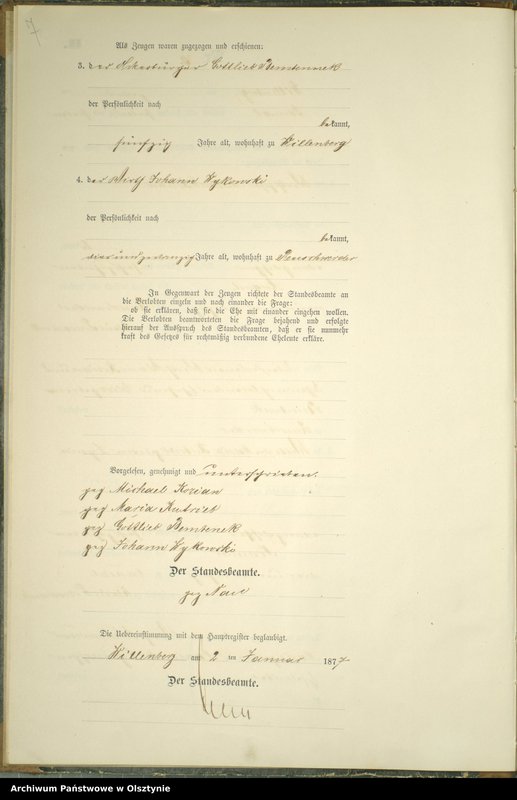 7
Als Zeugen waren zugezogen und erschienen:
3. der Ackerbürger Gottlieb Bemtenneck
der Persönlichkeit nach
bekannt,
fünfzig Jahre alt, wohnhaft zu Willenberg
4. der Wirth Johann Wykowski
der Persönlichkeit nach
bekannt,
vierundzwanzig Jahre alt, wohnhaft zu
In Gegenwart der Zeugen richtete der Standesbeamte an
die Verlobten einzeln und nach einander die Frage:
ob sie erklären, daß sie die Ehe mit einander eingehen wollen.
Die Verlobten beantworteten die Frage bejahend und erfolgte
hierauf der Ausspruch des Standesbeamten, daß er sie nunmehr
kraft des Gesetzes für rechtmäßig verbundene Eheleute erkläre.
Vorgelesen, genehmigt und unterschrieben.
gez Michael Kozian
gez Maria
gez Gottlieb Bemtenek
gez Johann Wykowski
Der Standesbeamte.
gez
Die Uebereinstimmung mit dem Hauptregister beglaubigt.
Willenberg am 2 ten Januar 1877
Der Standesbeamte.
Archiwum Państwowe w Olsztynie